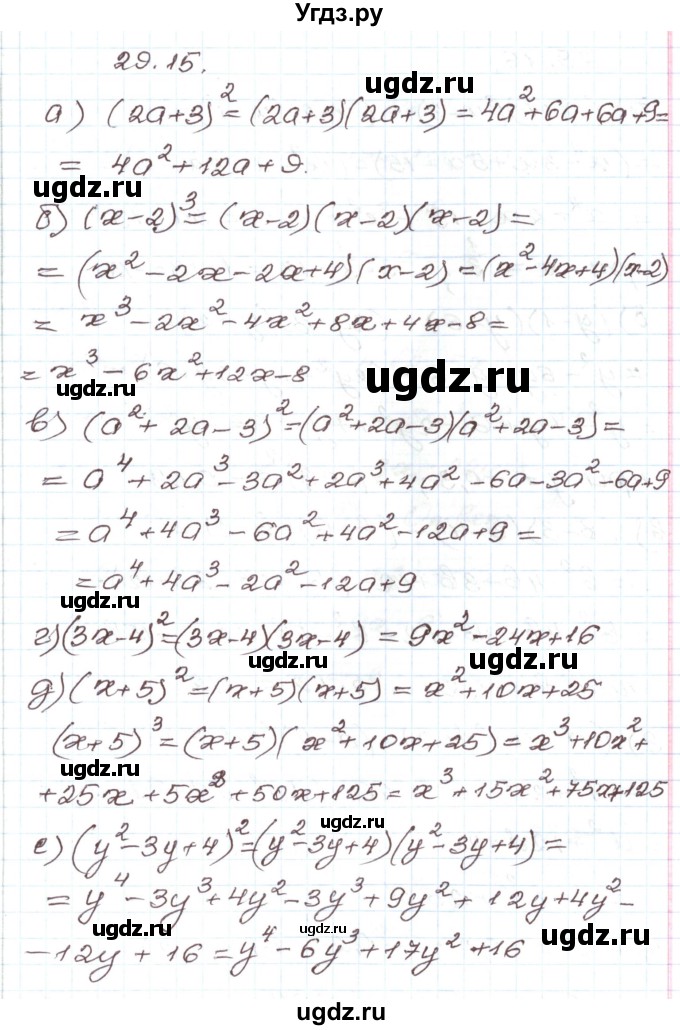 Угдз.ру
29.15.
а) (2a+3)² = (2a+3)(2a+3) = 4a²+6a+6a+9=
= 4a²+12a+9.
ugdz.ru
ugdz.ru
б) (x-2)³ = (x-2)(x-2)(x-2) =
= (x²-2x-2x+4)(x-2) = (x²-4x+4)(x-2)
= x³-2x²-4x²+8x+4x-8=
= x³-6x²+12x-8
ugdz.ru
ugdz.ru
в) (a²+2a-3)² = (a²+2a-3)(a²+2a-3) =
= a⁴+2a³-3a²+2a³+4a²-6a-3a²-6a+9
ugdz.ru
= a⁴+4a³-6a²+4a²-12a+9 =
= a⁴+4a³-2a²-12a+9
ugdz.ru
г) (3x-4)² = (3x-4)(3x-4) = 9x²-24x+16
ugdz.ru
д) (x+5)² = (x+5)(x+5) = x²+10x+25
(x+5)³ = (x+5)(x²+10x+25) = x³+10x²+
ugdz.ru
+25x+5x²+50x+125 = x³+15x²+75x+125
ugdz.ru
е) (y²-3y+4)² = (y²-3y+4)(y²-3y+4) =
= y⁴-3y³+4y²-3y³+9y²+12y+4y²-
ugdz.ru
ugdz.ru
-12y+16 = y⁴-6y³+17y²+16
ugdz.ru